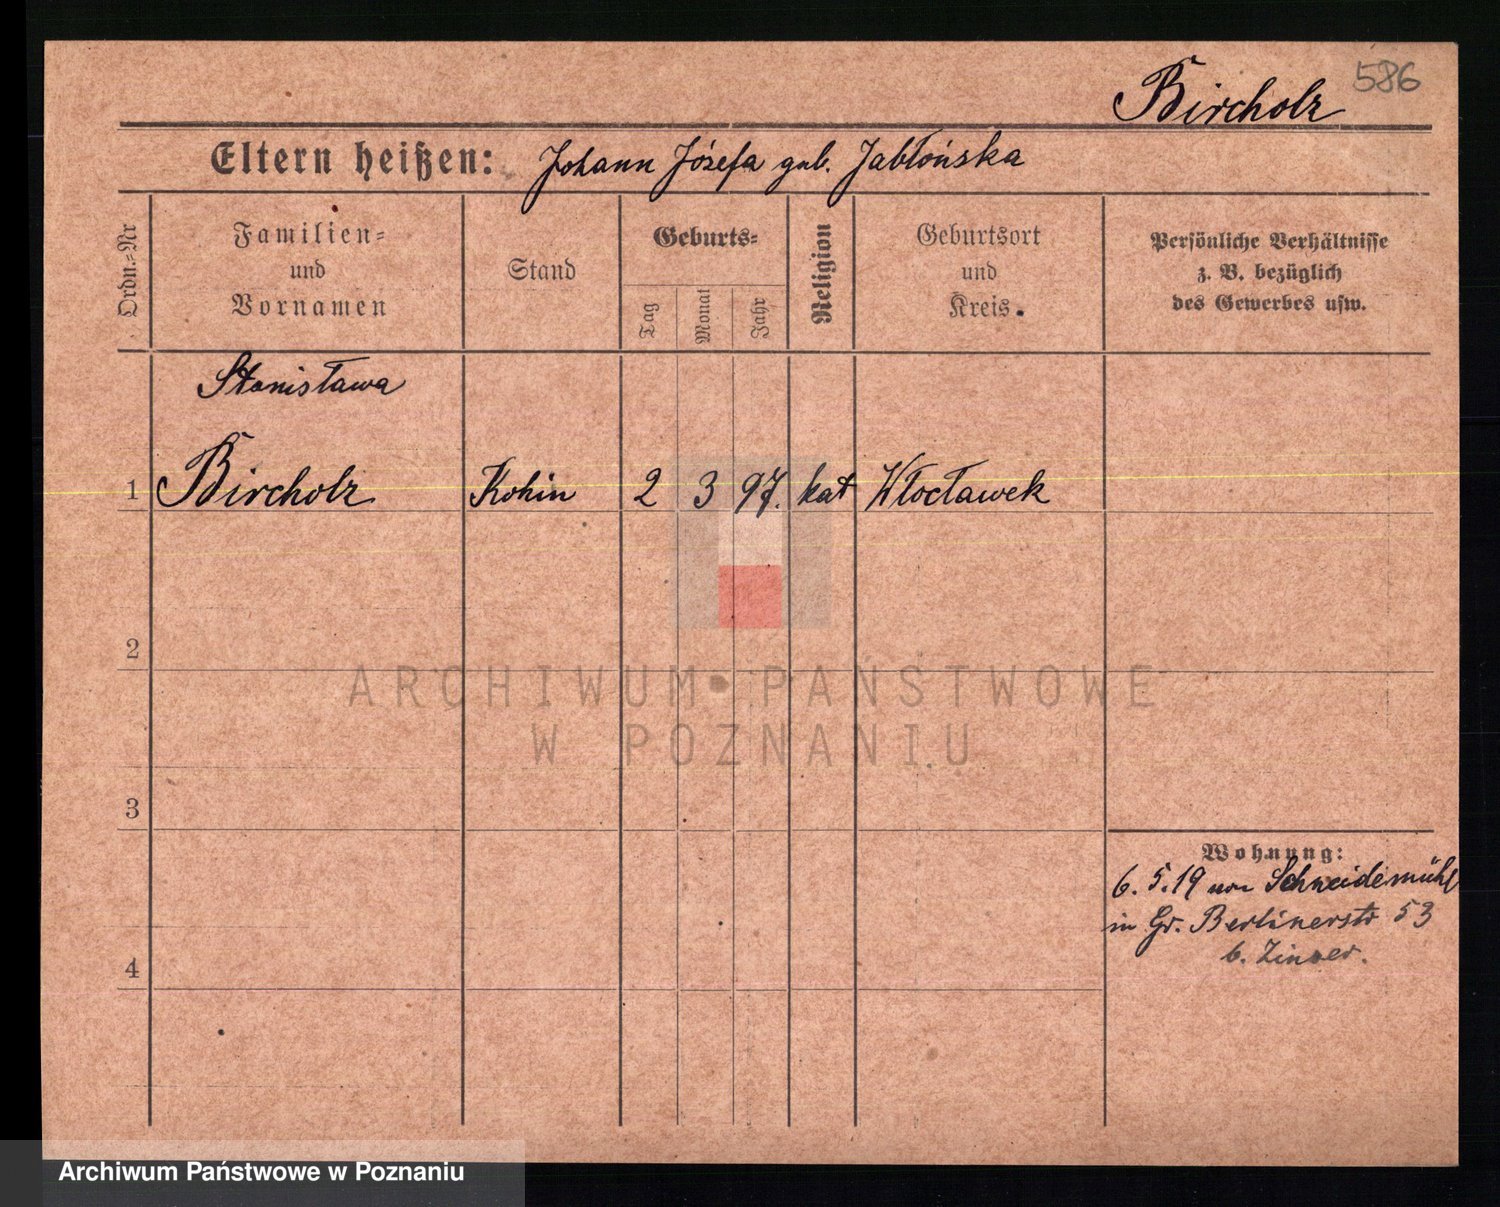 586
Bircholz
Eltern heißen: Johann Józefa geb. Jabłońska
Ordn.=Nr
Familien=
und
Vornamen
Stand
Geburts=
Tag
Monat
Jahr
Religion
Geburtsort
und
Kreis.
Persönliche Verhältnisse
z. B. bezüglich
des Gewerbes usw.
Stanisława
1 Bircholz 2 3 97. kat Włocławek
2
3
4
Wohnung:
6. 5. 19 von Schneidemühl
in Gr. Berlinerstr 53
b.
ARCHIWUM PAŃSTWOWE
W POZNANIU
Archiwum Państwowe w Poznaniu